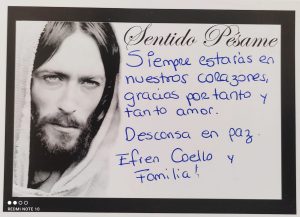 Sentido Pésame
Siempre estarás en
nuestros corazones,
gracias por tanto y
tanto amor.
Descansa en paz.
Efren Coello y
Familia!
REDMI NOTE 10